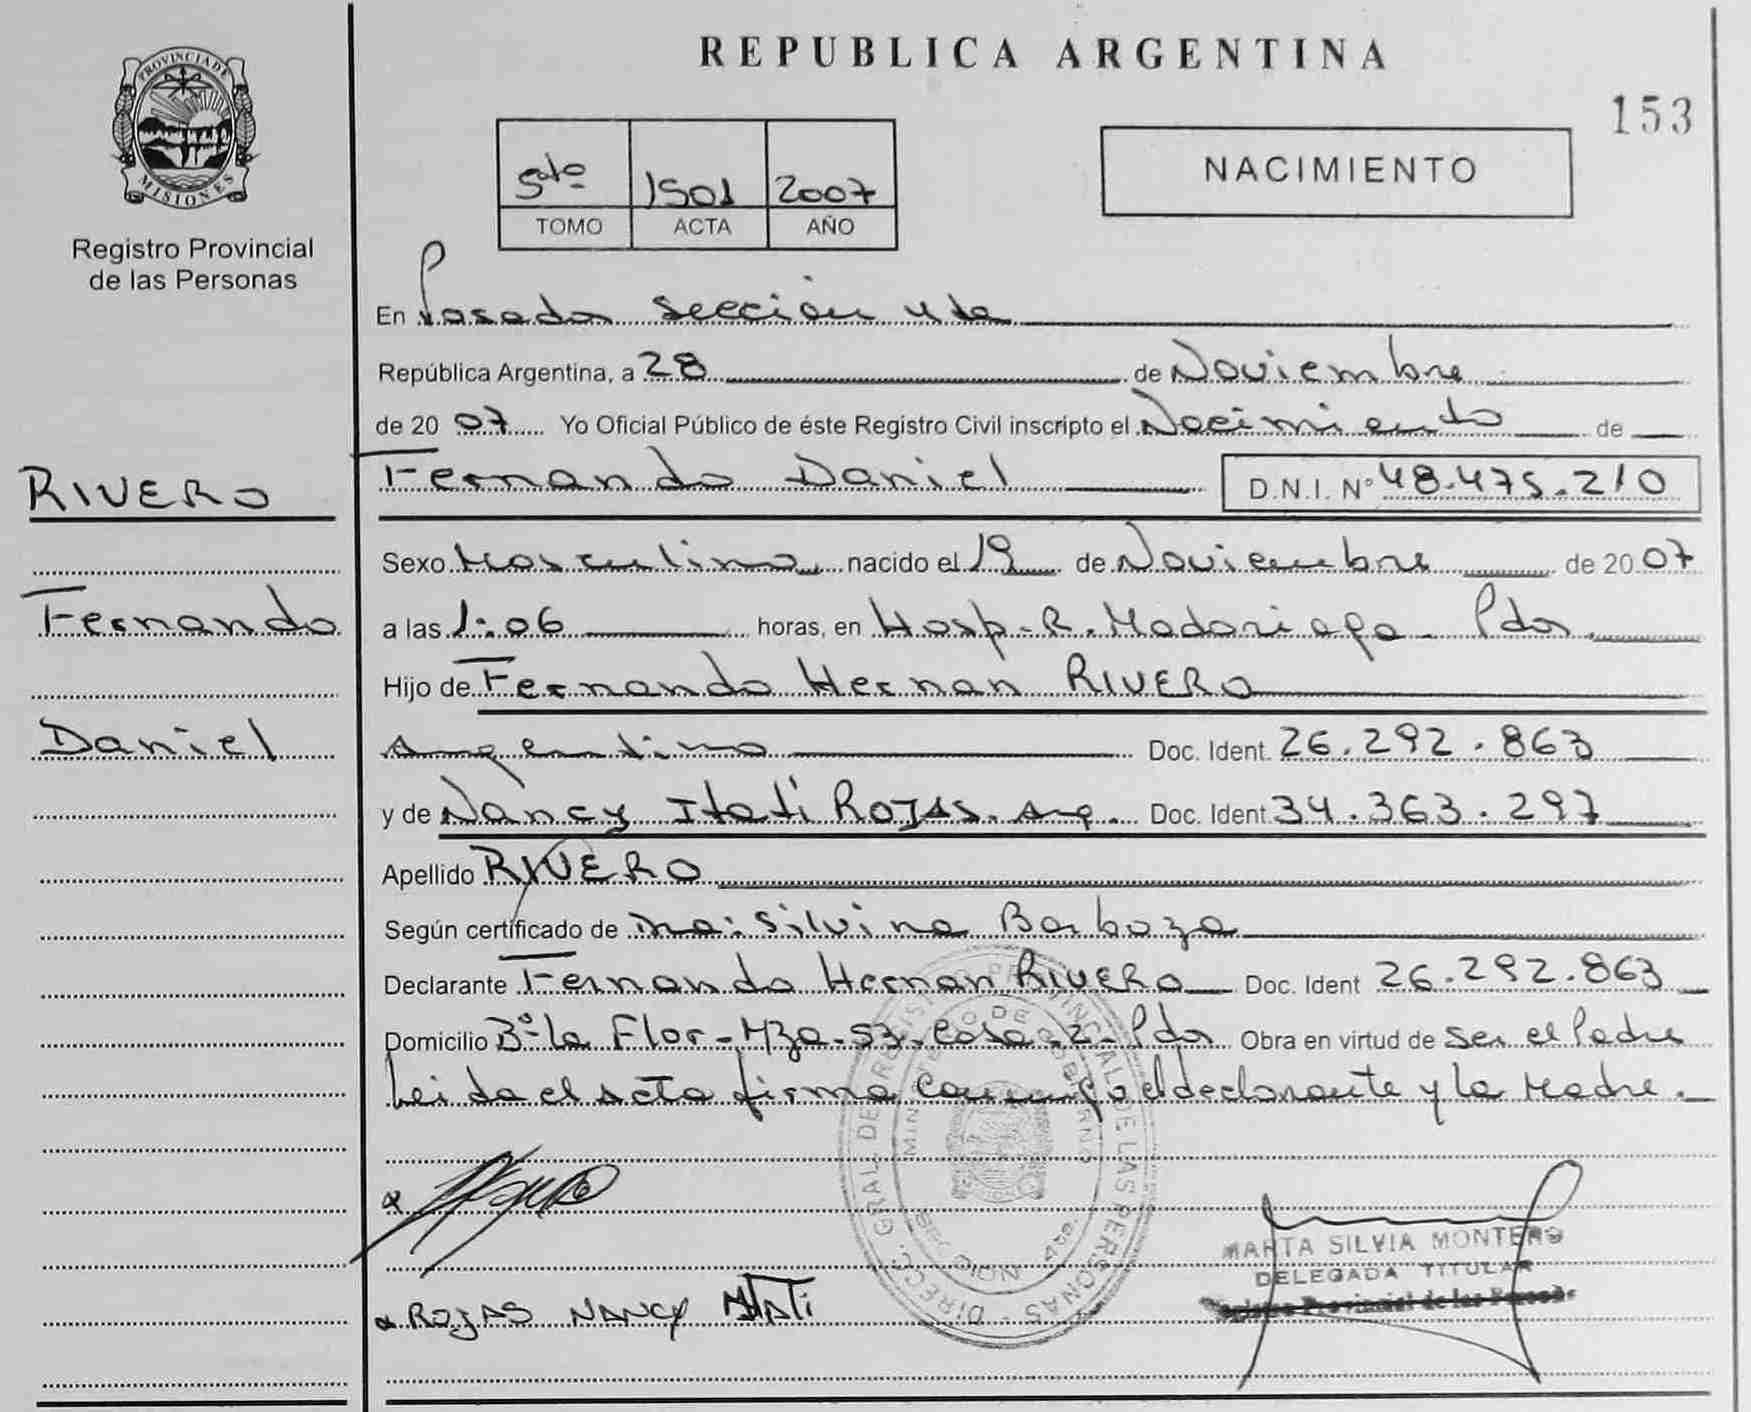 REPUBLICA ARGENTINA
153
PROVINCIA DE
MISIONES
Registro Provincial
de las Personas
5to 1501 2007
TOMO ACTA AÑO
NACIMIENTO
En Posadas Sección 4ta
República Argentina, a 28 de Noviembre
de 2007 Yo Oficial Público de éste Registro Civil inscripto el Nacimiento de
RIVERO
Fernando Daniel D.N.I. Nº 48.475.210
Sexo Masculino nacido el 19 de Noviembre de 2007
Fernando
a las 1:06 horas, en Hosp. R. Madariaga - Pdas.
Hijo de Fernando Hernan RIVERO
Daniel
Argentino Doc. Ident. 26.292.863
y de Nancy Itati ROJAS. Arg. Doc. Ident 34.363.297
Apellido RIVERO
Según certificado de Silvina Barboza
Declarante Fernando Hernan RIVERO Doc. Ident 26.292.863
Domicilio Bº la Flor - Mza - 53 - Casa - 2 - Pdas Obra en virtud de ser el Padre
Leida el acta firma conmigo el declarante y la Madre.
DIRECC. GRAL. DE REGISTRO PROVINCIAL DE LAS PERSONAS
MINISTERIO DE GOBIERNO
SECCION 4ta.
ROJAS NANCY ITATI
MARTA SILVIA MONTERO
DELEGADA TITULAR
Registro Provincial de las Personas